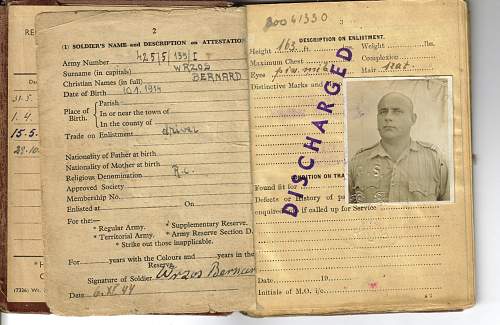 2
(1) SOLDIER'S NAME and DESCRIPTION on ATTESTATION.
Army Number
Surname (in capitals) WRZOS
Christian Names (in full) BERNARD
Date of Birth 10.1.1914
Place of Birth.
Parish
In or near the town of
In the county of
Trade on Enlistment driver
Nationality of Father at birth
Nationality of Mother at birth
Religious Denomination R.C.
Approved Society
Membership No.
Enlisted at On
For the:—
* Regular Army. * Supplementary Reserve.
* Territorial Army. * Army Reserve Section D.
* Strike out those inapplicable.
For years with the Colours and years in the Reserve.
Signature of Soldier Wrzos Bernard
Date 6.XI.44
31-5.
1.4.
15.5.
3
DESCRIPTION ON ENLISTMENT.
Height 163 ft. Weight lbs.
Maximum Chest Complexion
Eyes piwne Hair szat.
Distinctive Marks and
DISCHARGED
CONDITION ON TRA
Found fit for
Defects or History of p
enquired if called up for Service
Date 19
Initials of M.O. i/c.